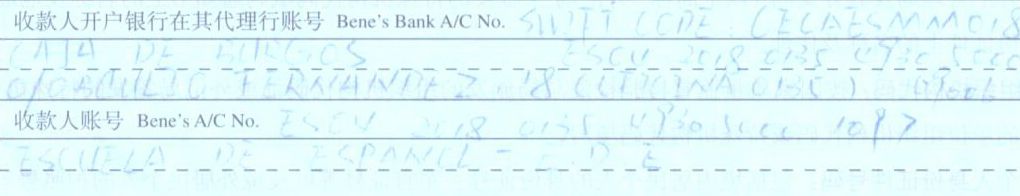 收款人开户银行在其代理行账号 Bene's Bank A/C No. SWIFT CODE: CECAESMM018
CAJA DE BURGOS ES04 2018 0135 4930 5000
FERNANDEZ 18 (OFICINA 0135)
收款人账号 Bene's A/C No. ES04 2018 0135 4930 5000 1097
ESCUELA DE ESPANOL - E.D.E